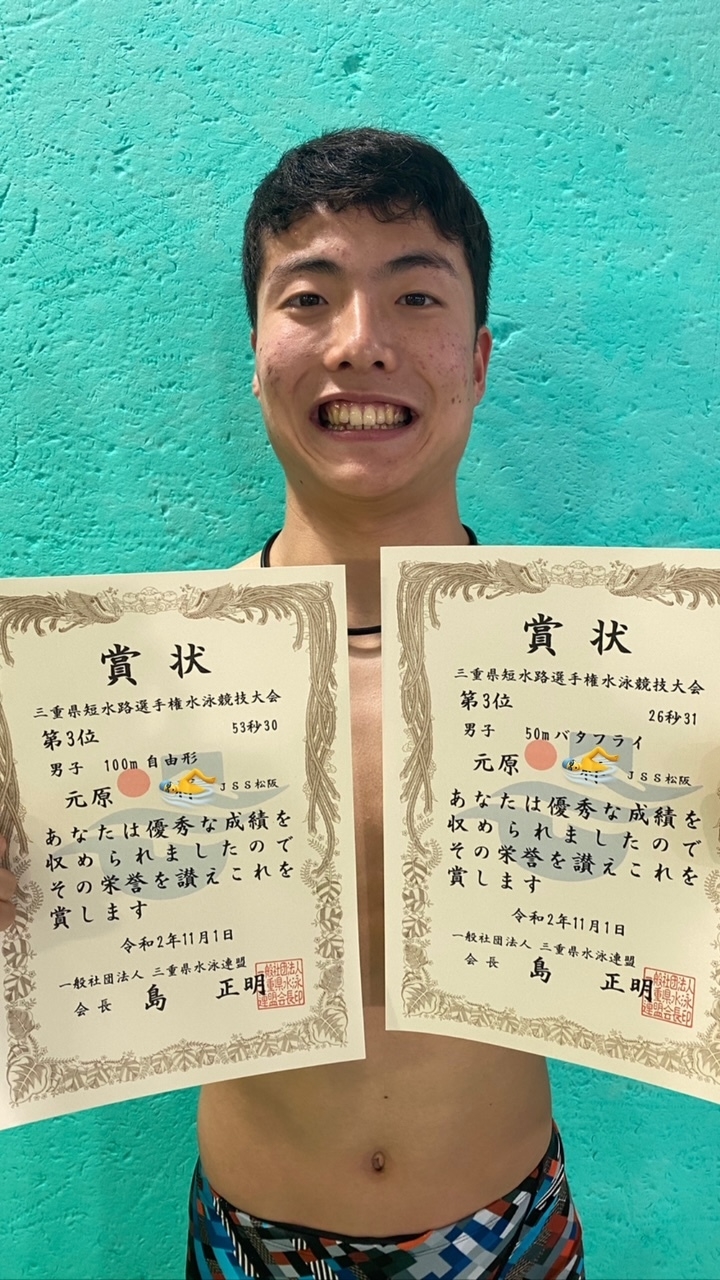 賞状
三重県短水路選手権水泳競技大会
第3位
53秒30
男子 100m 自由形
元原
JSS松阪
あなたは優秀な成績を
収められましたので
その栄誉を讃えこれを
賞します
令和2年11月1日
一般社団法人 三重県水泳連盟
会長 島 正明
一般社団法人
三重県水泳
連盟会長印
賞状
三重県短水路選手権水泳競技大会
第3位
26秒31
男子 50mバタフライ
元原
JSS松阪
あなたは優秀な成績を
収められましたので
その栄誉を讃えこれを
賞します
令和2年11月1日
一般社団法人 三重県水泳連盟
会長 島 正明
一般社団法人
三重県水泳
連盟会長印